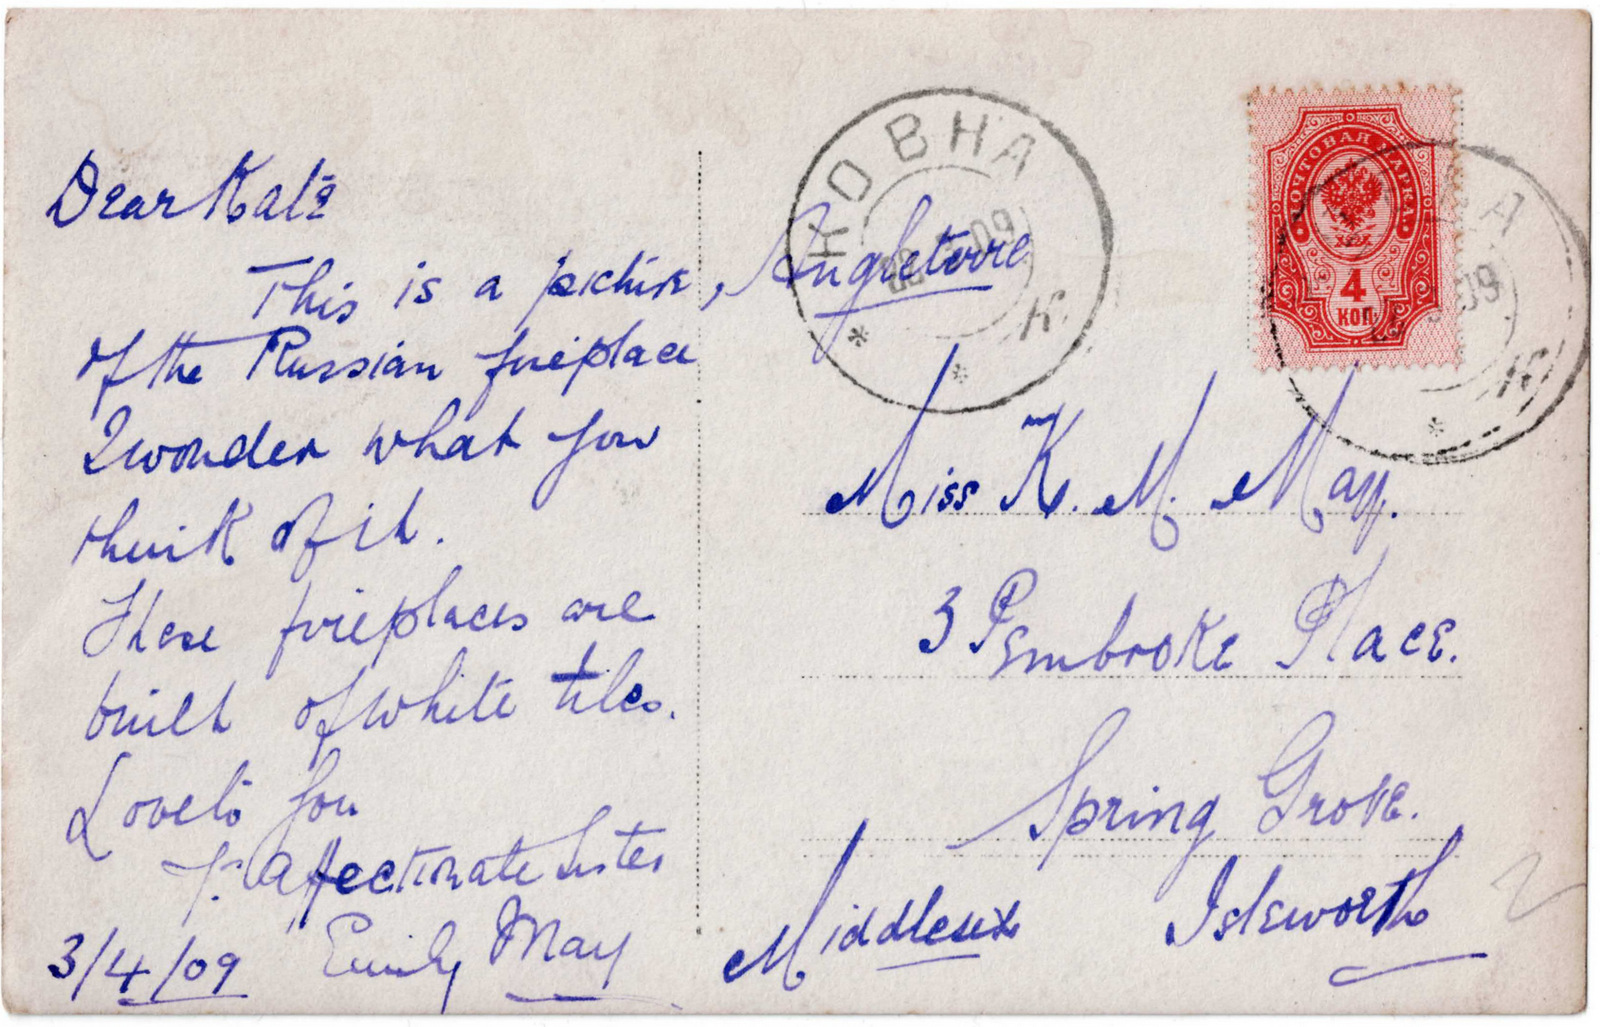 Dear Kate
This is a picture
of the Russian fireplace
I wonder what you
think of it.
These fireplaces are
built of white tiles.
Love to you
Yr. Affectionate Sister
Emily May
3/4/09
КОВНА
09
К.
Angleterre
ПОЧТОВАЯ МАРКА
4
КОП.
А
09
К
Miss K. M. May.
3 Pembroke Place.
Spring Grove.
Isleworth
Middlesex